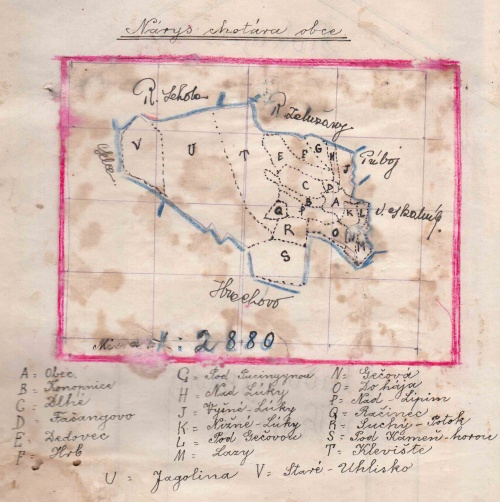 Nárys chotára obce
R. Lehota
R. Zaluzany
Príboj
Hrochovo
V
U
T
E
F
G
H
J
C
D
P
B
A
K
L
Q
R
O
S
M
2880
A = Obec
B = Konopnice
C = Dlhé
D = Fašangovo
E = Dedovec
F = Hrb
G = Pod
H = Nad Lúky
J = Vyšné-Lúky
K = Nižné-Lúky
L = Pod Gečovou
M = Lazy
N = Gečová
O = Do hája
P = Nad Lipim
Q = Račinec
R = Suchý-Potok
S = Pod Kameň-horou
T = Klevište
U = Jagolina V = Staré-Uhlisko